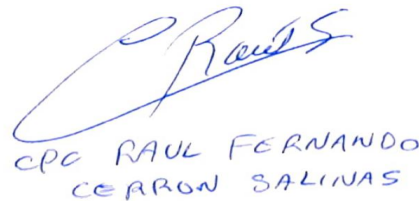 CPC RAUL FERNANDO
CERRON SALINAS